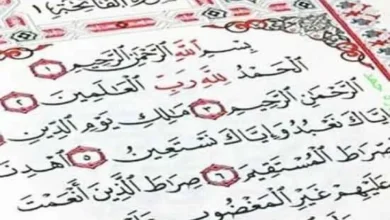 سُورَةُ الفَاتِحَةِ ١
بِسْمِ اللَّهِ الرَّحْمَٰنِ الرَّحِيمِ ١
الْحَمْدُ لِلَّهِ رَبِّ الْعَٰلَمِينَ ٢
الرَّحْمَٰنِ الرَّحِيمِ ٣ مَٰلِكِ يَوْمِ الدِّينِ
إِيَّاكَ نَعْبُدُ وَإِيَّاكَ نَسْتَعِينُ ٥ اهْدِنَا
الصِّرَٰطَ الْمُسْتَقِيمَ ٦ صِرَٰطَ الَّذِينَ أَنْعَمْتَ
عَلَيْهِمْ غَيْرِ الْمَغْضُوبِ